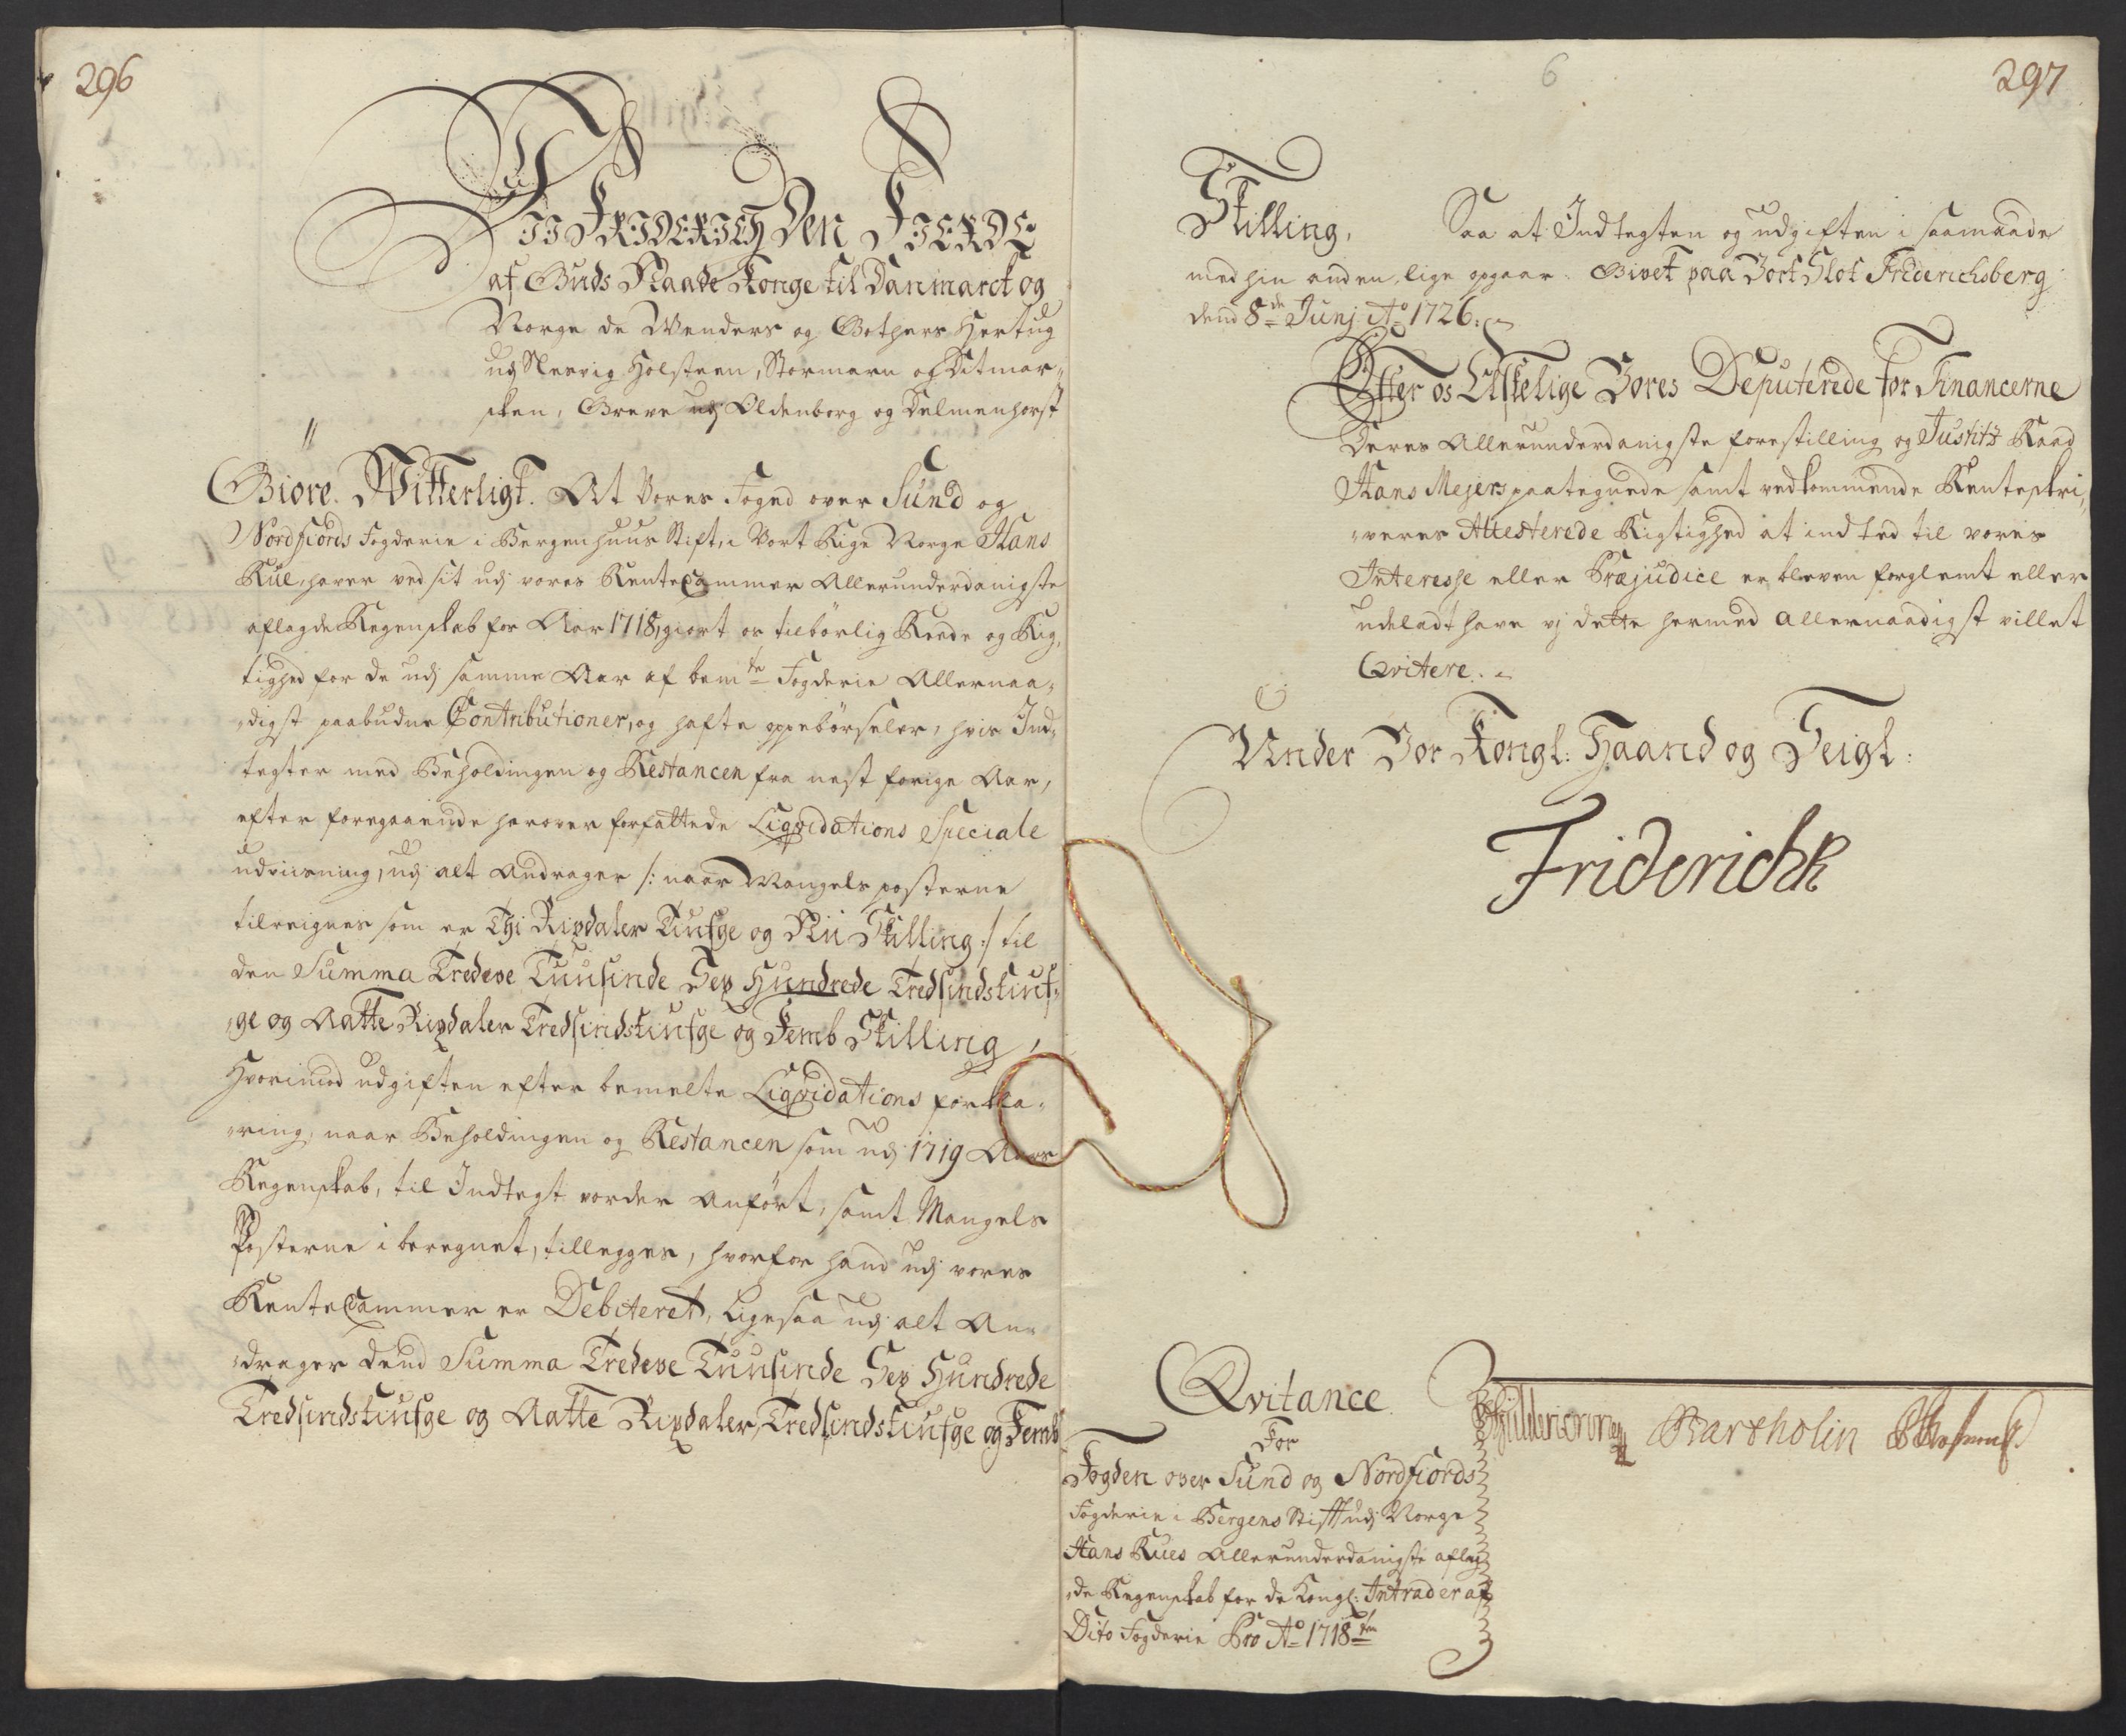 296
Wii Friderich Den Fierde
af Guds Naade Konge til Danmarck og
Norge de Wenders og Gothers Hertug
udj Slesvig Holsteen, Stormarn og Ditmar-
sken, Greve udj Oldenborg og Delmenhorst
Giøre Witterligt. At Vores Foged over Sund og
Nordfiords Fogderie i Bergenhuus Stift, i Vort Rige Norge Hans
Rue, haver ved sit udj vores RenteCammer Allerunderdanigste
aflagde Regenskab for Aar 1718, giort os tilbørlig Reede og Rig-
tighed for de udj samme Aar af bemte Fogderie Allernaa-
digst paabudne Contributioner, og hafte oppebørseler, hvis Ind-
tegter med Beholdingen og Restancen fra nest forige Aar,
efter foregaaende herover forfattede Liqvidations Speciale
udviisning, udj alt Andrager /: naar Mangels posterne
tilreignes som er Thi Rixdaler Tiufge og Nii Skilling :/ til
den Summa Tredeve Tuusinde Sex Hundrede Tredsindstiuf-
ge og Aatte Rixdaler Tredsindstiufge og Femb Skilling,
Hvorimod udgiften efter bemelte Liqvidations forkla-
ring, naar Beholdingen og Restancen som udj 1719 Aars
Regenskab, til Indtegt vorder anført, samt Mangels
Posterne iberegnet, tillegges, hvorfor hand udj vores
RenteCammer er Debiteret, ligesaa udj alt An-
drager dend Summa Tredeve Tuusinde Sex Hundrede
Tredsindstiufge og Aatte Rixdaler, Tredsindstiufge og Femb
6
297
Skilling, Saa at Indtegten og udgiften i saamaade
med hin anden lige opgaar. Givet paa Vort Slot Friderichsberg
dend 8de Junj Ao 1726.
Efter os Elskelige Vores Deputerede for Financerne
Deres Allerunderdanigste forestilling og Justitz Raad
Hans Mejers paategnede samt vedkommende Renteskri-
veres Attesterede Rigtighed at intet til vores
Interesse eller Præjudice er bleven forglemt eller
udeladt have vj dette hermed allernaadigst villet
Qvitere.
Under Vor Kongl: Haand og Seigl:
Friderich R
Qvitance
For
Fogden over Sund og Nordfiords
Fogderie i Bergens Stift udj Norge
Hans Rues Allerunderdanigste aflag-
de Regenskab for de Kongl: Intrader af
Dito Fogderie Pro Ao 1718ten
Bartholin